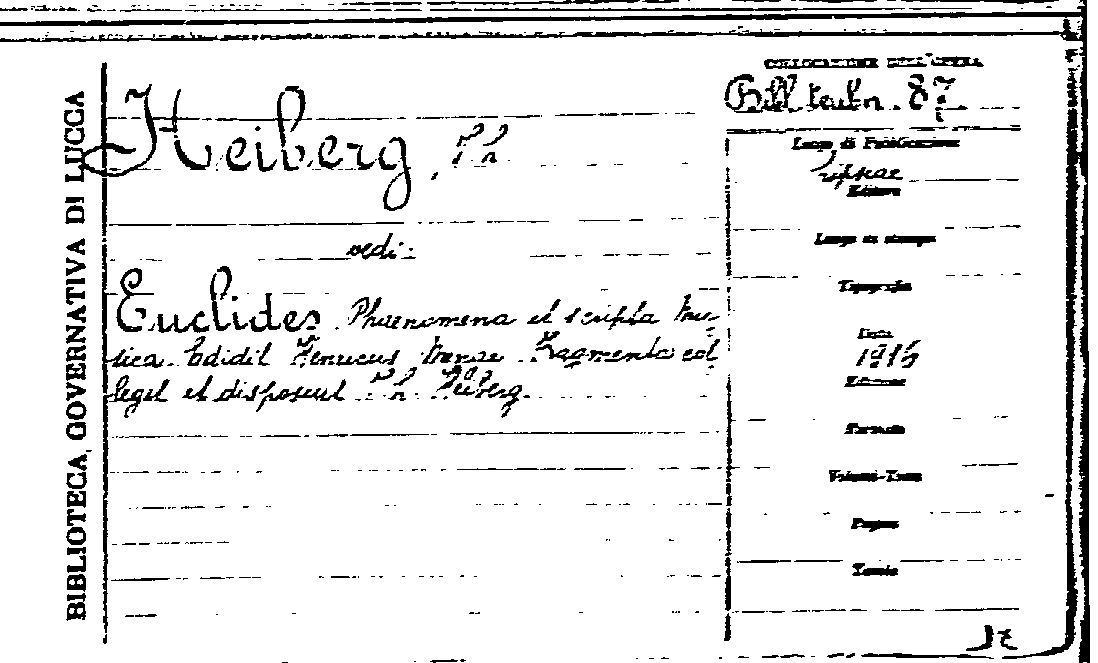 BIBLIOTECA GOVERNATIVA DI LUCCA
COLLOCAZIONE DELL'OPERA
Bibl. teubn. 87
Heiberg,
Luogo di Pubblicazione
Lipsiae
Editore
vedi:
Luogo di stampa
Euclides Phaenomena et scripta mu-
sica. Edidit Henricus Menge. Fragmenta col
legit et disposuit Heiberg.
Tipografia
Data
1916
Edizione
Formato
Volumi-Tomi
Pagine
Tavole